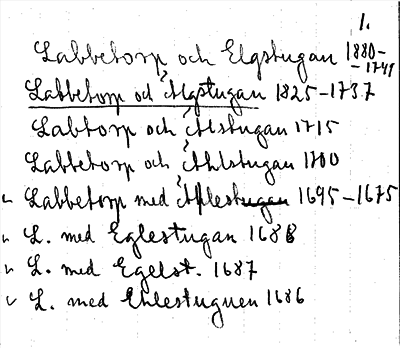 1.
Labbetorp och Elgstugan 1880-
-1749
Labbetorp och Älgstugan 1825-1737
Labtorp och Älstugan 1715
Labbetorp och Åhlstugan 1700
Labbetorp med Ählestugan 1695-1675
L. med Eglestugan 1688
L. med Egelst. 1687
L. med Ehlestuguen 1686